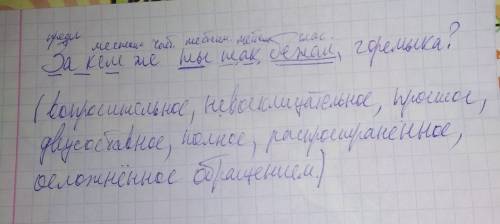 предл местоим. част. местоим. местоим. глаг.
За кем же ты так бежал, горемыка?
(вопросительное, невосклицательное, простое,
двусоставное, полное, распространённое,
осложнённое обращением.)